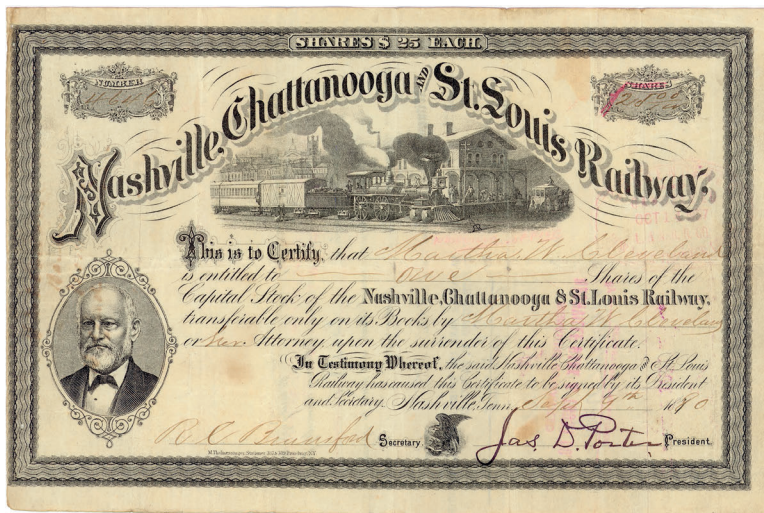 SHARES $ 25 EACH.
NUMBER
SHARES
Nashville, Chattanooga AND St. Louis Railway.
OCT 1
This is to Certify, that Martha W. Cleveland
is entitled to one Shares of the
Capital Stock of the Nashville, Chattanooga & St. Louis Railway,
transferable only on its Books by Martha W. Cleveland
or her Attorney, upon the surrender of this Certificate.
In Testimony Whereof, the said Nashville Chattanooga & St. Louis
Railway has caused this Certificate to be signed by its President
and Secretary. Nashville, Tenn, Sept 7th 1880
Secretary. Jas. D. Porter President.